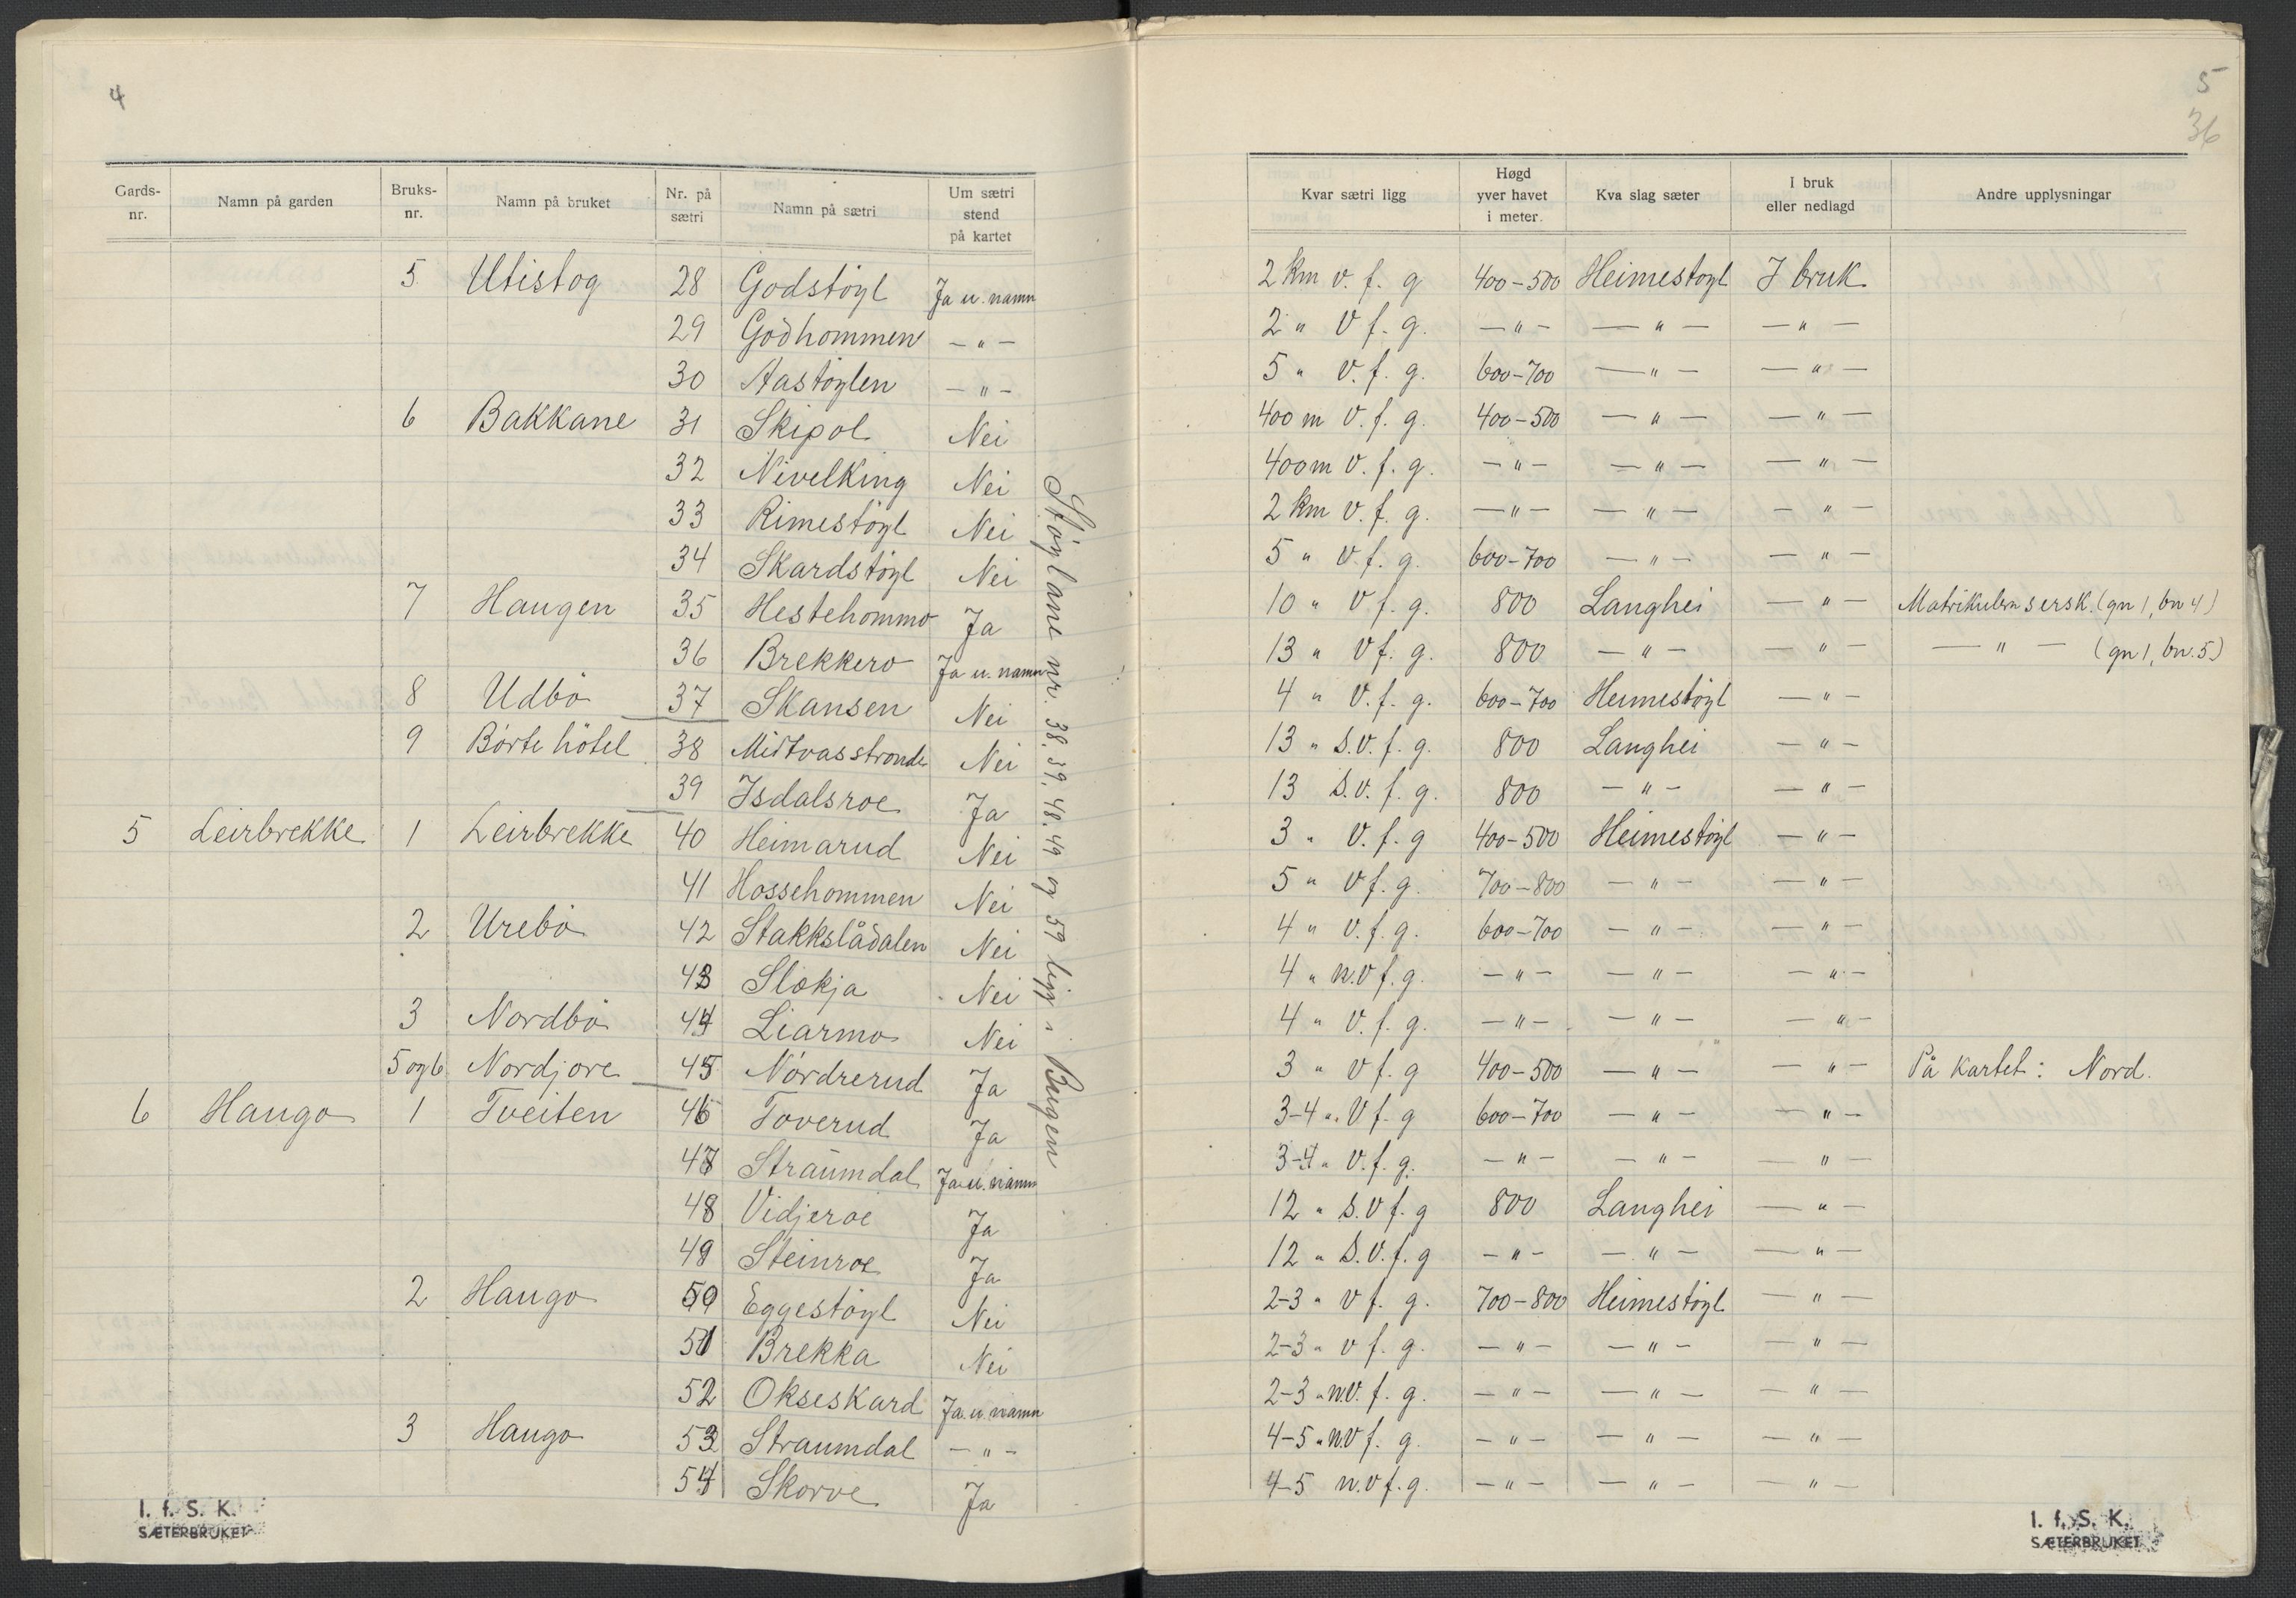 4
Gards-nr. Namn på garden Bruks-nr. Namn på bruket Nr. på sætri Namn på sætri Um sætri stend på kartet
5 Utistog 28 Godstøyl Ja u. namn
29 Godhommen — " —
30 Aastøylen — " —
6 Bakkane 31 Skipol Nei
32 Nivelking Nei
33 Rimestøyl Nei
34 Skardstøyl Nei
7 Haugen 35 Hestehommo Ja
36 Brekkero Ja u. namn
8 Udbø 37 Skansen Nei
9 Børte hotel 38 Midtvasstronde Nei
39 Isdalsroe Ja
5 Leirbrekke 1 Leirbrekke 40 Heimarud Nei
41 Hossehommen Nei
2 Urebø 42 Stakkslådalen Nei
43 Slokja Nei
3 Nordbø 44 Liarmo Nei
5 og 6 Nordjore 45 Nordrerud Ja
6 Haugo 1 Tveiten 46 Toverud Ja
47 Straumdal Ja u. namn
48 Vidjeroe Ja
49 Steinroe Ja
2 Haugo 50 Eggestøyl Nei
51 Brekka Nei
52 Okseskard Ja u. namn
3 Haugo 53 Straumdal — " —
54 Skorve Ja
Støylane nr. 38. 39. 48. 49 og 59 ligg i Bygen
I. f. S. K.
SÆTERBRUKET
5
36
Kvar sætri ligg Høgd yver havet i meter. Kva slag sæter I bruk eller nedlagd Andre upplysningar
2 km v. f. g 400-500 Heimestøyl I bruk
2 " v f. g. — " — — " — — " —
5 " v. f. g. 600-700 — " — — " —
400 m v. f. g. 400-500 — " — — " —
400 m v. f. g. — " — — " — — " —
2 km v. f. g. — " — — " — — " —
5 " v. f. g. 600-700 — " — — " —
10 " v f. g. 800 Langhei — " — Matrikulera sersk. (gn 1, bn 4)
13 " v f. g. 800 — " — — " — — " — (gn 1, bn. 5)
4 " v. f. g. 600-700 Heimestøyl — " —
13 " S.V. f. g. 800 Langhei — " —
13 S.V. f. g. 800 — " — — " —
3 " v. f. g 400-500 Heimestøyl — " —
5 " v f. g. 700-800 — " — — " —
4 " v. f. g. 600-700 — " — — " —
4 " n.v f. g. — " — — " — — " —
4 " v. f. g. — " — — " — — " —
3 " v f. g 400-500 — " — — " — På kartet: Nord.
3-4 " v f. g 600-700 — " — — " —
3-4 " v. f. g. — " — — " — — " —
12 " S.V f. g 800 Langhei — " —
12 " S.V. f. g — " — — " — — " —
2-3 " v f. g. 700-800 Heimestøyl — " —
2-3 " v f. g. — " — — " — — " —
2-3 " n.v. f. g. — " — — " — — " —
4-5 " n.v f. g. — " — — " — — " —
4-5 n.v f. g. — " — — " — " —
I. f. S. K.
SÆTERBRUKET